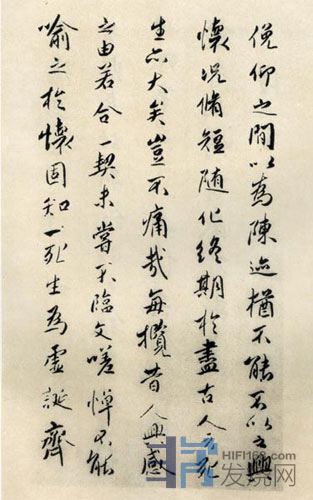 俛仰之間以為陳迹猶不能不以之興
懷況脩短隨化終期於盡古人云死
生亦大矣豈不痛哉每攬昔人興感
之由若合一契未嘗不臨文嗟悼不能
喻之於懷固知一死生為虛誕齊
HIFI168.com
发烧网